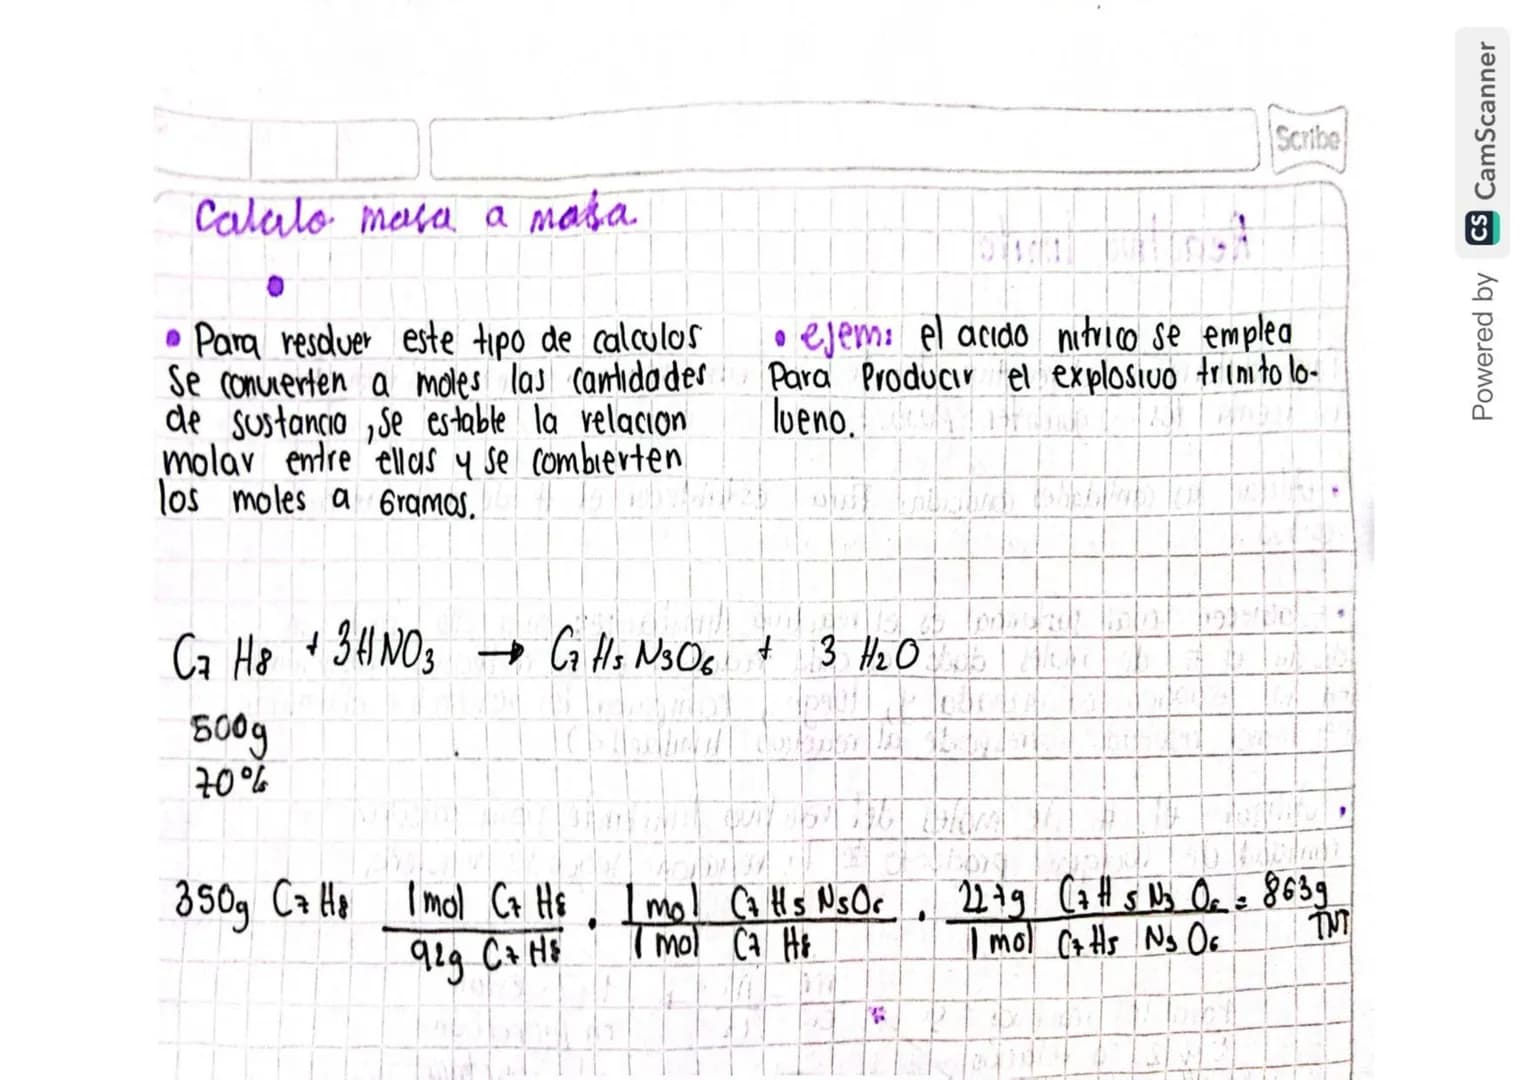 Scribe
Calculo masa a masa
• Para resolver este tipo de calculos
se convierten a moles las cantidades
de sustancia, se estable la relacion
molar entre ellas y se combierten
los moles a Gramos.
• ejem: el acido nitrico se emplea
Para Producir el explosivo trinitolo-
lueno.
C7 H8 + 3HNO3 → C7 H5 N3O6 + 3 H2O
500g
70%
350g C7 H8 1 mol C7 H8 . 1 mol C7 H5 N3O6 . 227g C7 H5 N3 O6 = 863g
92g C7 H8 1 mol C7 H8 1 mol C7 H5 N3 O6 TNT
Powered by CS CamScanner